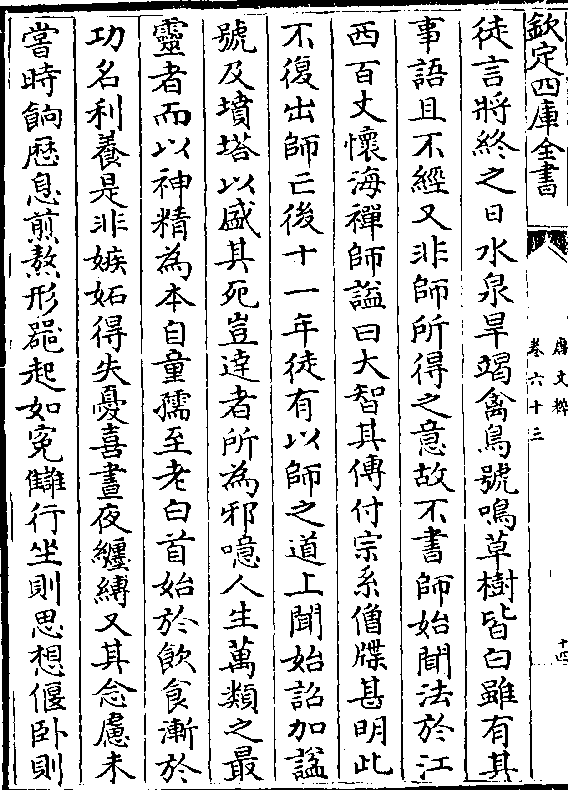 欽定四庫全書
唐文粹
卷六十三
十四
徒言將終之日水泉旱竭禽鳥號鳴草樹皆白雖有其
事語且不經又非師所得之意故不書師始聞法於江
西百丈懷海禪師諡曰大智其傳付宗系僧牒甚明此
不復出師亡後十一年徒有以師之道上聞始詔加諡
號及墳塔以盛其死豈達者所為邪噫人生萬類之最
靈者而以神精為本自童孺至老白首始於飲食漸於
功名利養是非嫉妬得失憂喜晝夜纏縛又其念慮未
嘗時餉歴息煎熬形器起如寃讎行坐則思想偃卧則